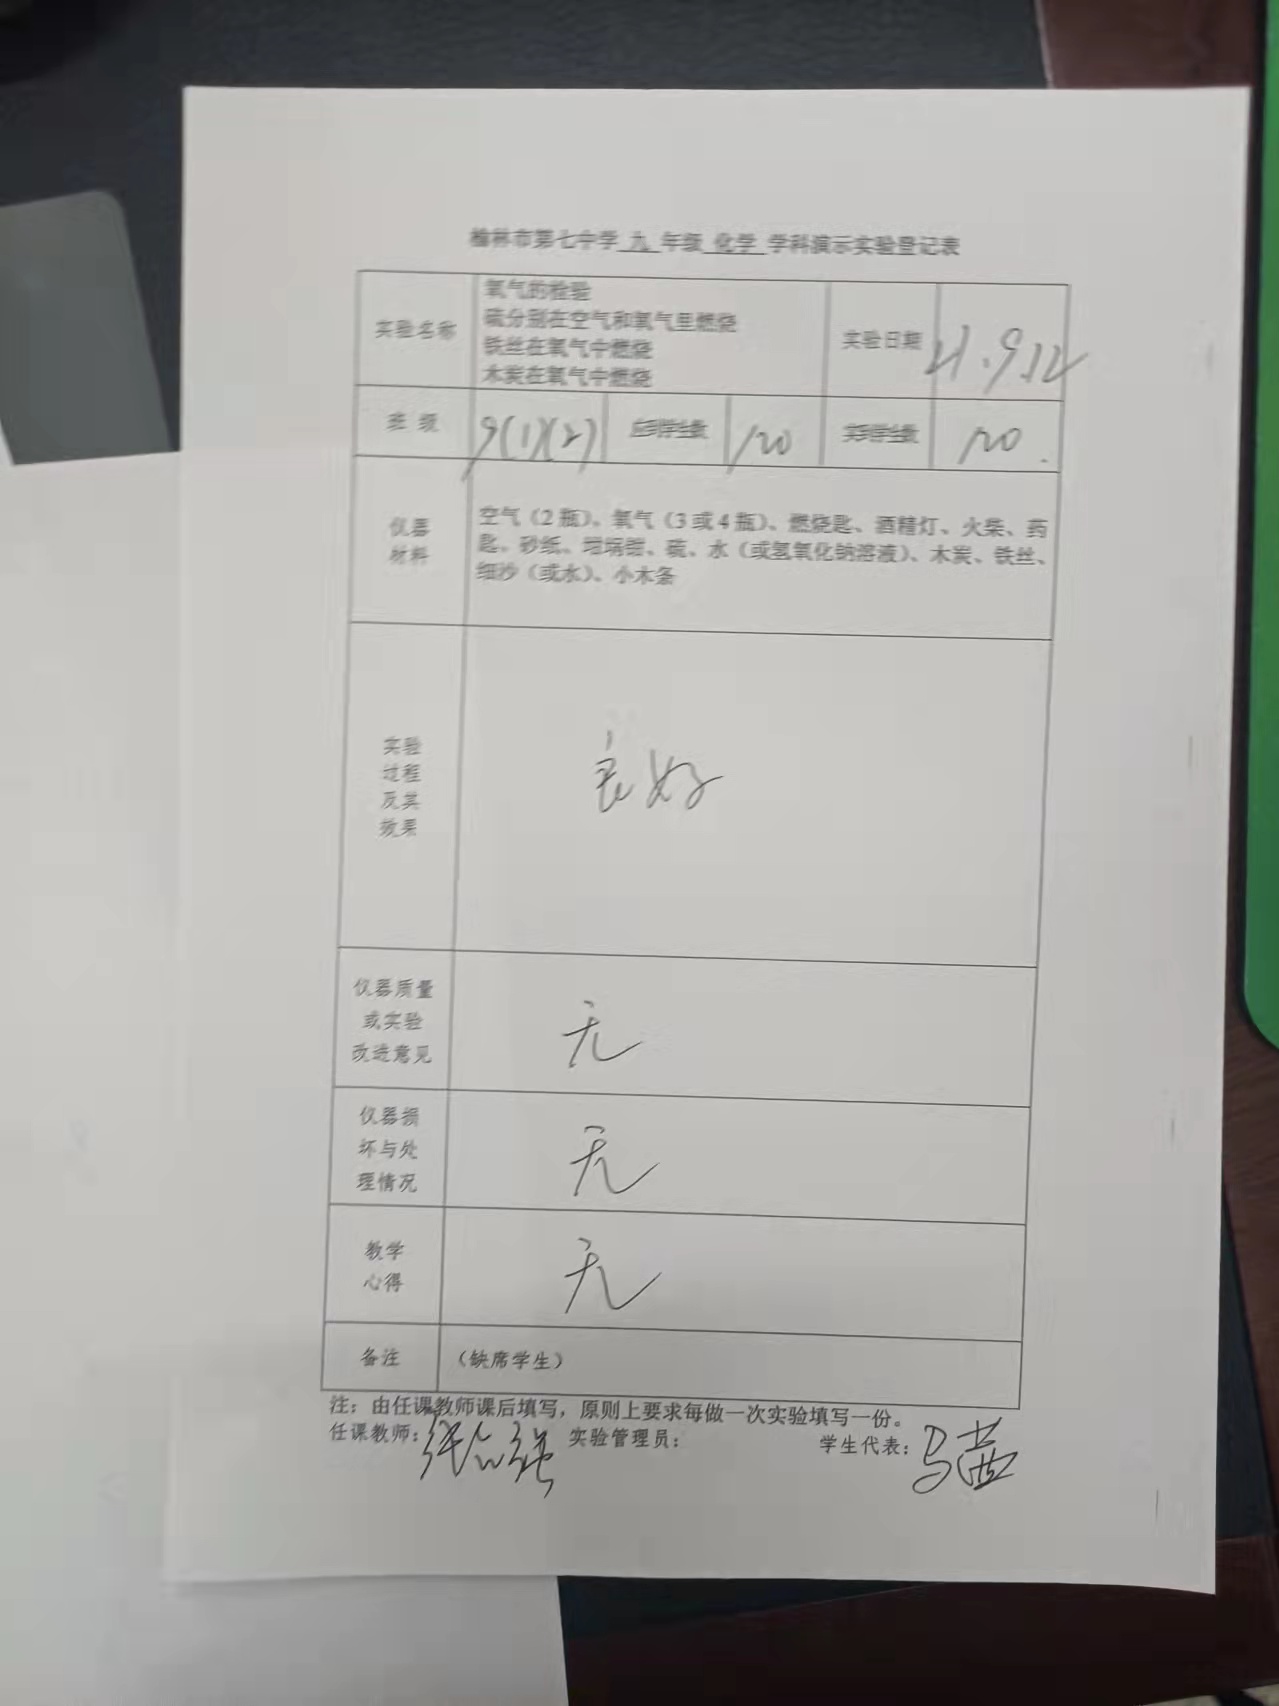 榆林市第七中学 九 年级 化学 学科演示实验登记表
实验名称
氧气的检验
硫分别在空气和氧气里燃烧
铁丝在氧气中燃烧
木炭在氧气中燃烧
实验日期
21.9.12
班 级 9(1)(2) 应到学生数 120 实到学生数 120.
仪器
材料
空气（2 瓶）、氧气（3 或 4 瓶）、燃烧匙、酒精灯、火柴、药
匙、砂纸、坩埚钳、硫、水（或氢氧化钠溶液）、木炭、铁丝、
细沙（或水）、小木条
实验
过程
反其
效果
良好
仪器质量
或实验
改进意见
无
仪器损
坏与处
理情况
无
教学
心得
无
备注 （缺席学生）
注：由任课教师课后填写，原则上要求每做一次实验填写一份。
任课教师： 实验管理员： 学生代表：马茜